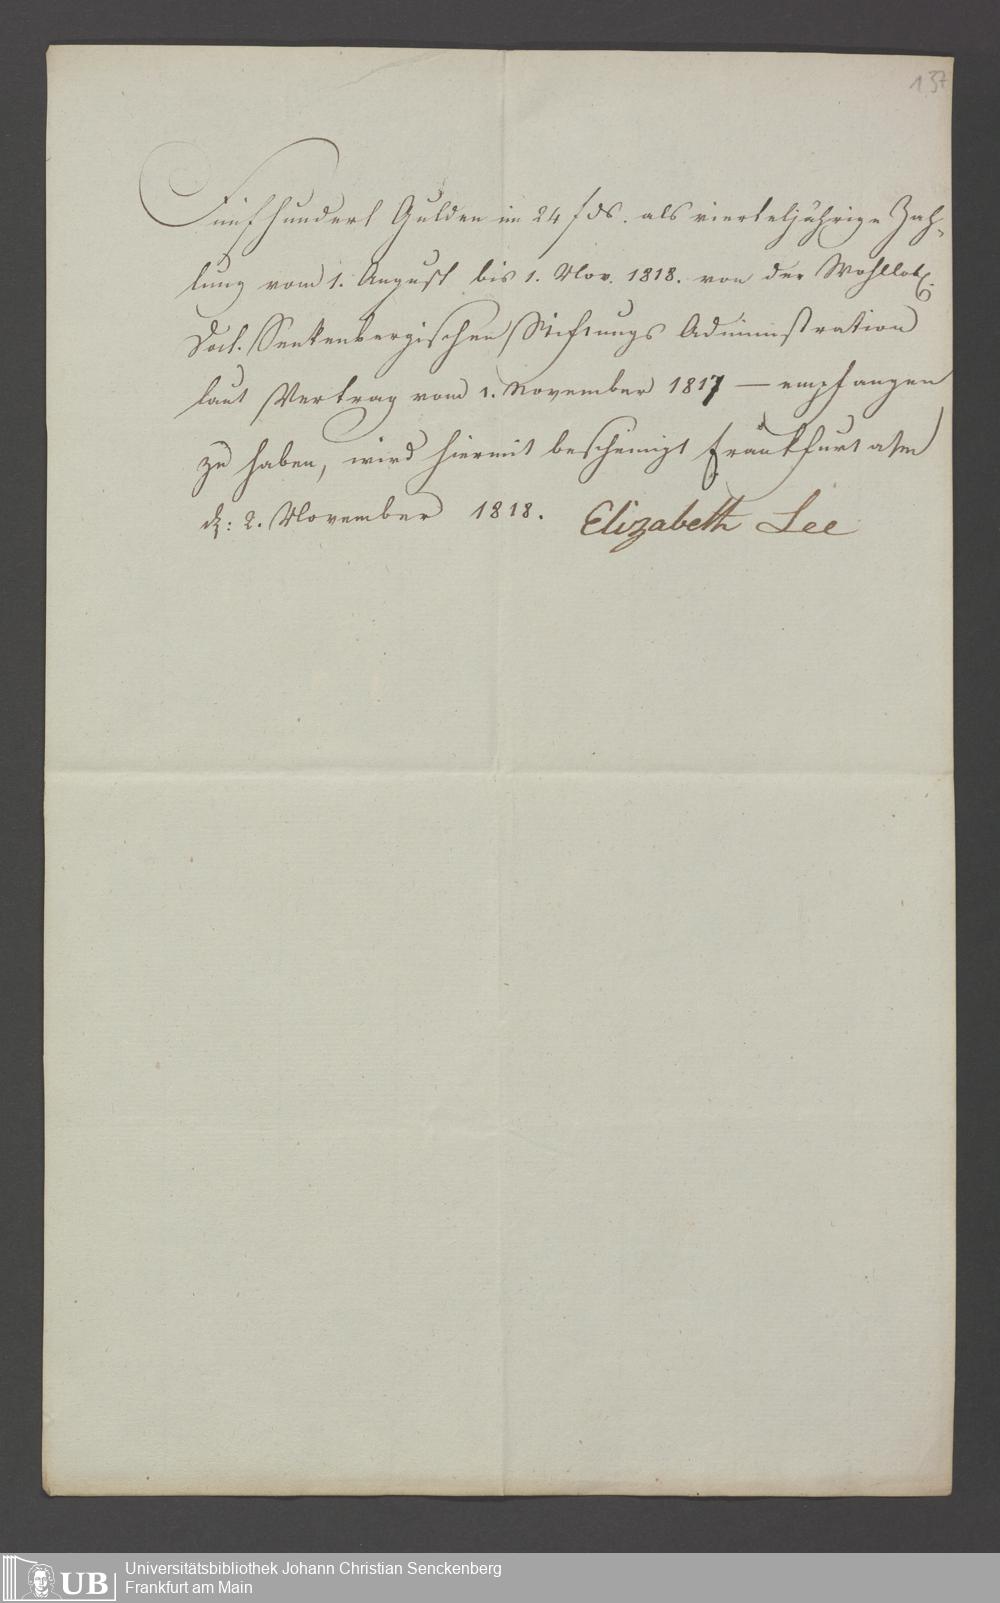 137
Fünfhundert Gulden im 24 f ds. als vierteljährige Zah-
lung vom 1. August bis 1. Nov. 1818. von der Wohllobl.
Doct. Senkenbergischen Stiftungs Administration
laut Vertrag vom 1. November 1817 — empfangen
zu haben, wird hiermit bescheinigt Frankfurt a/m
d: 2. November 1818. Elizabeth Lee
UB
Universitätsbibliothek Johann Christian Senckenberg
Frankfurt am Main